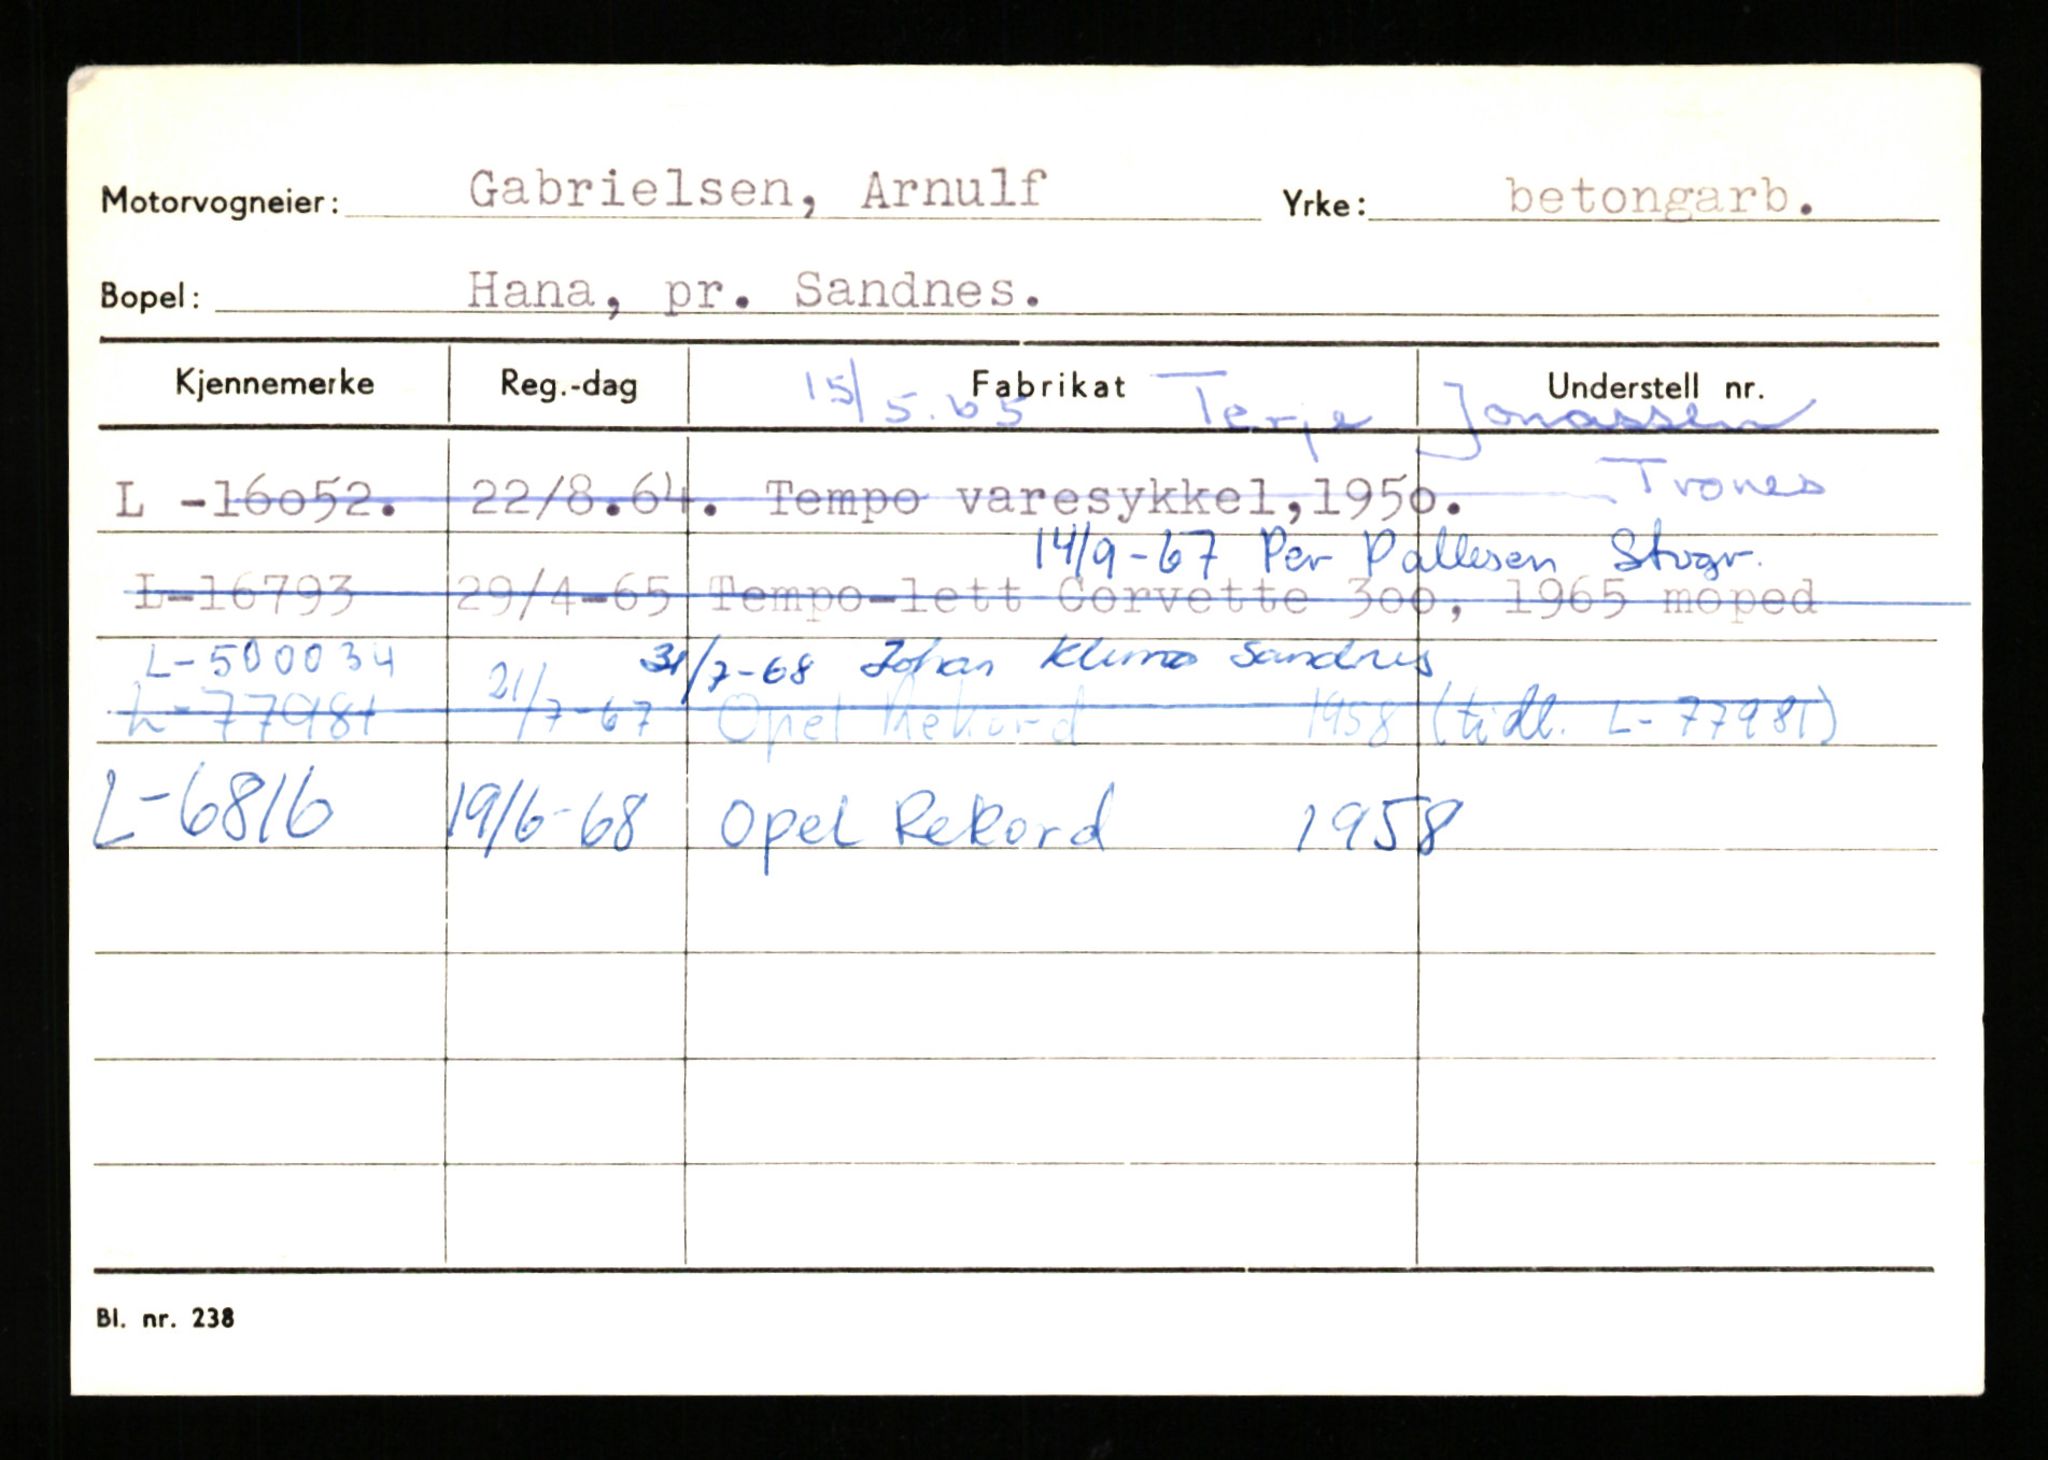 Motorvogneier: Gabrielsen, Arnulf Yrke: betongarb.
Bopel: Hana, pr. Sandnes.
Kjennemerke Reg.-dag Fabrikat Understell nr.
15/5.65 Terje Jonassen
Trones
L -16052. 22/8.64. Tempo varesykkel,1950.
14/9-67 Per Pallesen Stvgr.
L-16793 29/4-65 Tempo-lett Corvette 300, 1965 moped
L-500034 31/7-68 Johan Sandnes
L-77981 21/7-67 Opel Rekord 1958 (tidl. L-77981)
L-6816 19/6-68 Opel Rekord 1958
Bl. nr. 238